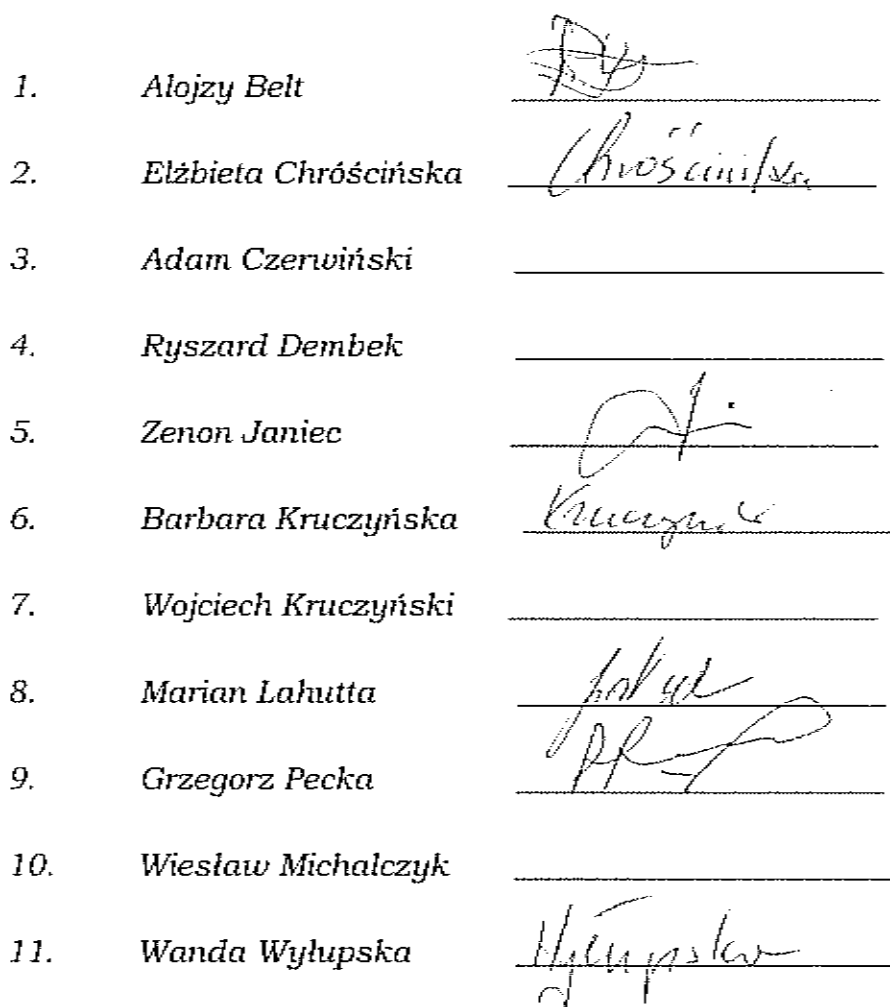 1. Alojzy Belt
2. Elżbieta Chróścińska Chróścińska
3. Adam Czerwiński
4. Ryszard Dembek
5. Zenon Janiec
6. Barbara Kruczyńska
7. Wojciech Kruczyński
8. Marian Lahutta
9. Grzegorz Pecka
10. Wiesław Michalczyk
11. Wanda Wyłupska Wyłupska